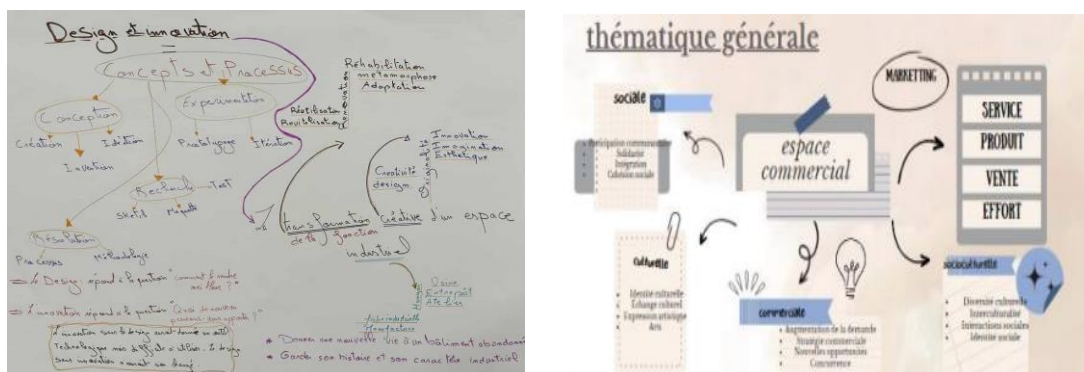 Design et innovation
Concepts et Processus
Conception
Expérimentation
Création
Idéation
Invention
Prototypage
Itération
Recherche
Test
Sketch
Maquette
Résolution
Processus
Méthodologie
Réhabilitation
métamorphose
Adaptation
Réutilisation
Revitalisation
Innovation
Imagination
Esthétique
Créativité
design
transformation créative d'un espace
de la fonction
industriel
Usine
Entrepôt
Atelier
Manufacture
=> Le Design répond à la question "comment le rendre meilleur ?"
=> L'innovation répond à la question
L'innovation sans le design
Technologique mais difficile à utiliser. Le design
sans innovation
* Donner une nouvelle vie à un bâtiment abandonné
* Garde son histoire et son caractère industriel
thématique générale
MARKETTING
sociale
Participation communautaire
Solidarité
Intégration
Cohésion sociale
espace
commercial
SERVICE
PRODUIT
VENTE
EFFORT
culturelle
Identité culturelle
Échange culturel
Expression artistique
Arts
commerciale
Augmentation de la demande
Stratégie commerciale
Nouvelles opportunités
Concurrence
socioculturelle
Diversité culturelle
Interculturalité
Interactions sociales
Identité sociale